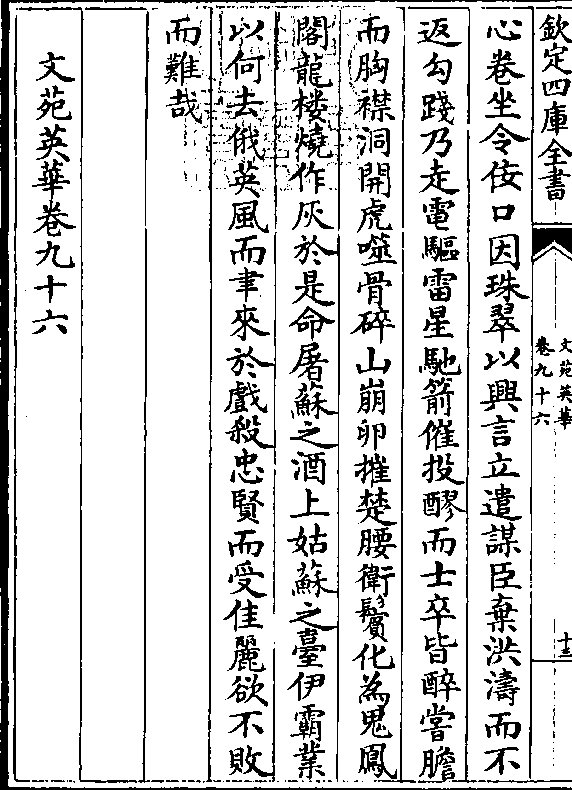 欽定四庫全書
文苑英華
卷九十六
十三
心卷坐令佞口因珠翠以興言立遣謀臣棄洪濤而不
返勾踐乃走電驅雷星馳箭催投醪而士卒皆醉嘗膽
而胸襟洞開虎噬骨碎山崩卵摧楚腰衛鬢化為鬼鳳
閣龍樓燒作灰於是命屠蘇之酒上姑蘇之臺伊霸業
以何去俄英風而聿來於戲殺忠賢而受佳麗欲不敗
而難哉
文苑英華卷九十六